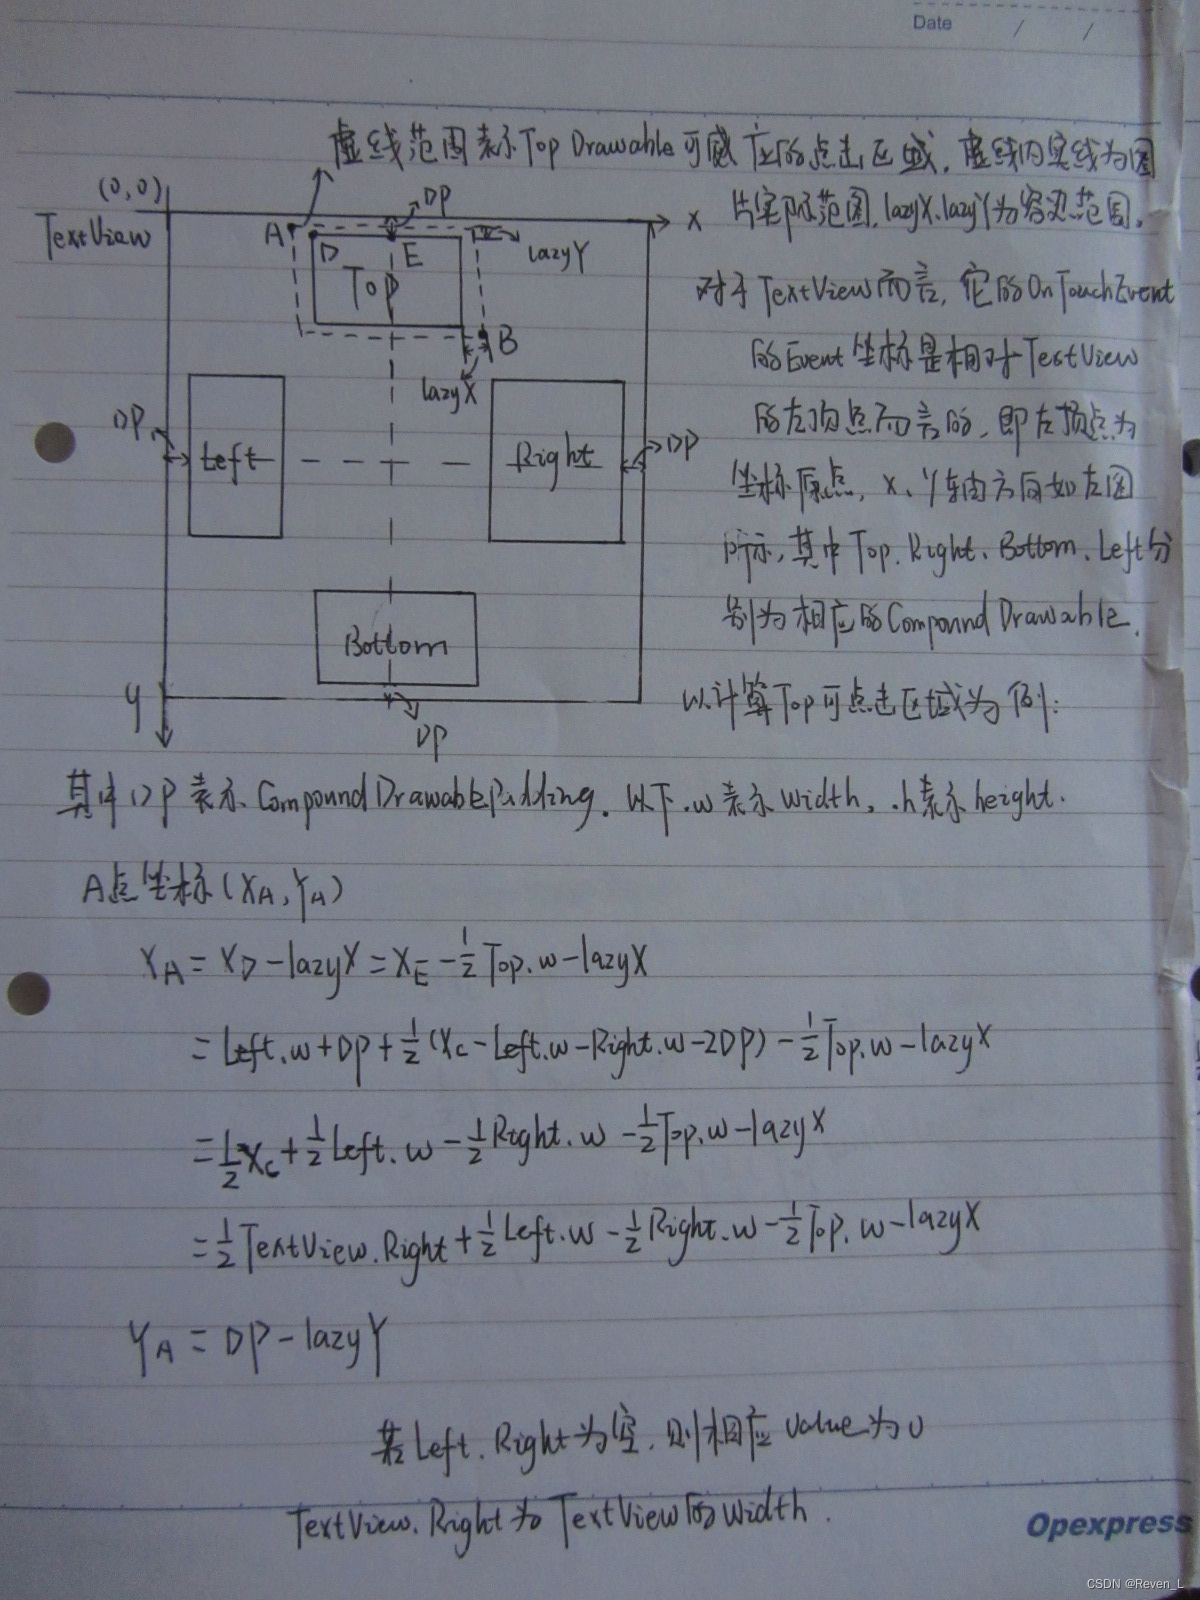 Date / /
虚线范围表示Top Drawable可感应的点击区域，虚线内实线为图
片实际范围，lazyX、lazyY为容忍范围。
(0,0)
TextView
A
DP
x
D
E
lazyY
Top
B
lazyX
对于TextView而言，它的OnTouchEvent
的Event坐标是相对TextView
的左顶点而言的，即左顶点为
坐标原点，x、y轴方向如左图
所示，其中Top、Right、Bottom、Left分
别为相应的Compound Drawable.
DP
Left
Right
DP
Bottom
y
DP
以计算Top可点击区域为例：
其中DP表示CompoundDrawablePadding。以下.w表示width，.h表示height.
A点坐标(XA,YA)
XA=XD-lazyX=XE-½Top.w-lazyX
=Left.w+DP+½(Xc-Left.w-Right.w-2DP)-½Top.w-lazyX
=½Xc+½Left.w-½Right.w-½Top.w-lazyX
=½TextView.Right+½Left.w-½Right.w-½Top.w-lazyX
YA=DP-lazyY
若Left、Right为空，则相应value为0
TextView.Right为TextView的width.
Opexpress
CSDN @Reven_L